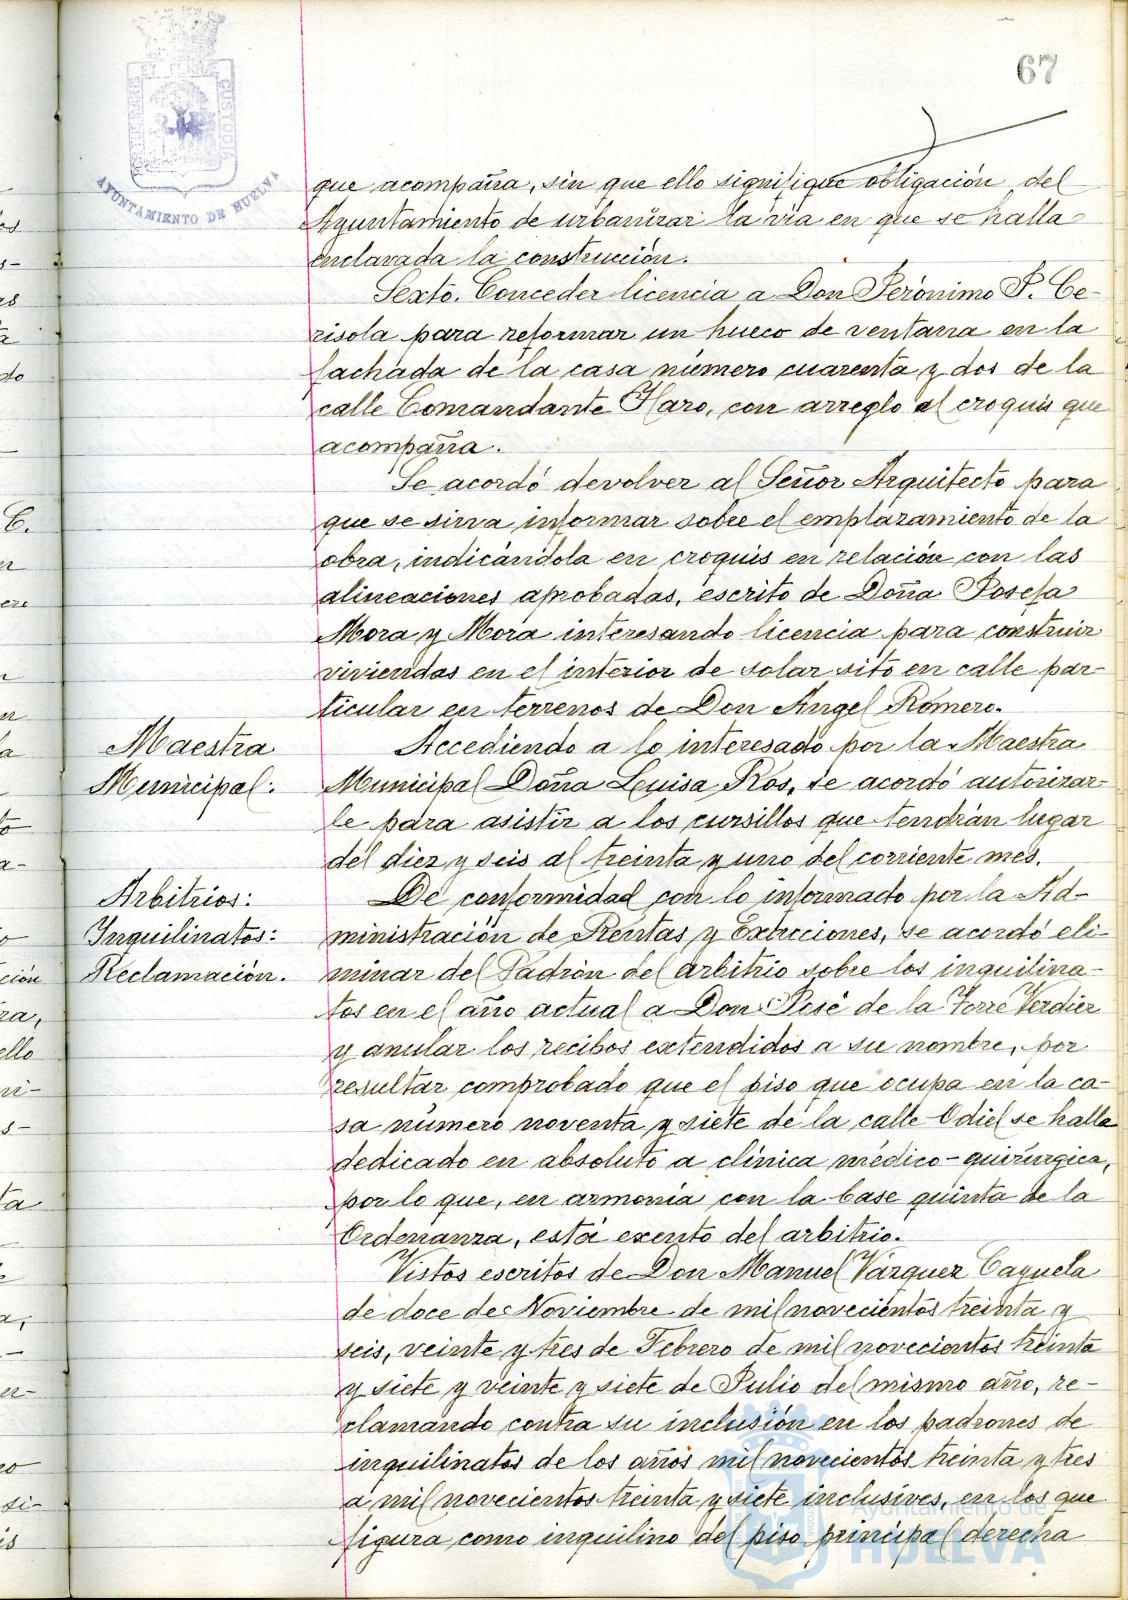 67
PORTUS MARIS ET TERRAE CUSTODIA
AYUNTAMIENTO DE HUELVA
que acompaña, sin que ello signifique obligación del
Ayuntamiento de urbanizar la vía en que se halla
enclavada la construcción.
Sexto. Conceder licencia a Don Jerónimo P. Ce-
risola para reformar un hueco de ventana en la
fachada de la casa número cuarenta y dos de la
calle Comandante Haro, con arreglo al croquis que
acompaña.
Se acordó devolver al Señor Arquitecto para
que se sirva informar sobre el emplazamiento de la
obra, indicándola en croquis en relación con las
alineaciones aprobadas, escrito de Doña Josefa
Mora y Mora interesando licencia para construir
viviendas en el interior de solar sito en calle par-
ticular en terrenos de Don Angel Romero.
Maestra
Municipal:
Accediendo a lo interesado por la Maestra
Municipal Doña Luisa Ros, se acordó autorizar-
le para asistir a los cursillos que tendrán lugar
del diez y seis al treinta y uno del corriente mes.
Arbitrios:
Inquilinatos:
Reclamación.
De conformidad con lo informado por la Ad-
ministración de Rentas y Exacciones, se acordó eli-
minar del Padrón del arbitrio sobre los inquilina-
tos en el año actual a Don José de la Torre Verdier
y anular los recibos extendidos a su nombre, por
resultar comprobado que el piso que ocupa en la ca-
sa número noventa y siete de la calle Odiel se halla
dedicado en absoluto a clínica médico-quirúrgica,
por lo que, en armonía con la base quinta de la
Ordenanza, está exento del arbitrio.
Vistos escritos de Don Manuel Vázquez Cayuela
de doce de Noviembre de mil novecientos treinta y
seis, veinte y tres de Febrero de mil novecientos treinta
y siete y veinte y siete de Julio del mismo año, re-
clamando contra su inclusión en los padrones de
inquilinatos de los años mil novecientos treinta y tres
a mil novecientos treinta y siete inclusives, en los que
figura como inquilino del piso principal derecha
Ayuntamiento de
HUELVA